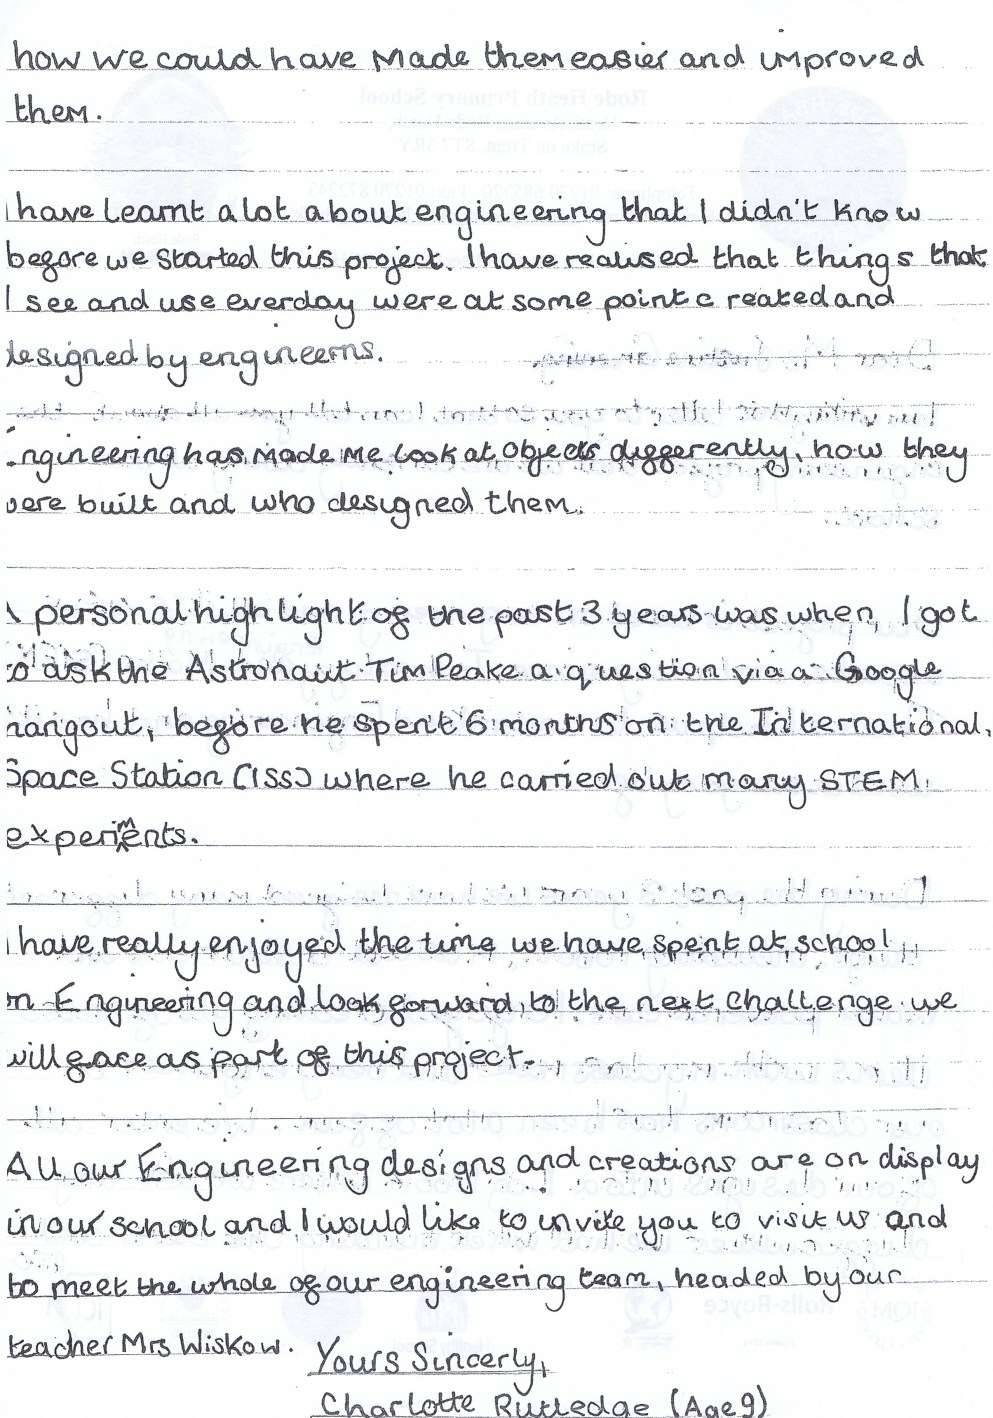 how we could have made them easier and improved
them.
I have learnt a lot about engineering that I didn't know
before we started this project. I have realised that things that
I see and use everday were at some point created and
designed by engineerns.
Engineering has made me look at objects differently, how they
were built and who designed them.
A personal highlight of the past 3 years was when I got
to ask the Astronaut Tim Peake a question via a Google
hangout, before he spent 6 months on the International
Space Station (ISS) where he carried out many STEM
experiments.
I have really enjoyed the time we have spent at school
on Engineering and look forward to the next challenge we
will face as part of this project.
All our Engineering designs and creations are on display
in our school and I would like to invite you to visit us and
to meet the whole of our engineering team, headed by our
teacher Mrs Wiskow.
Yours Sincerly,
Charlotte Rutledge (Age 9)